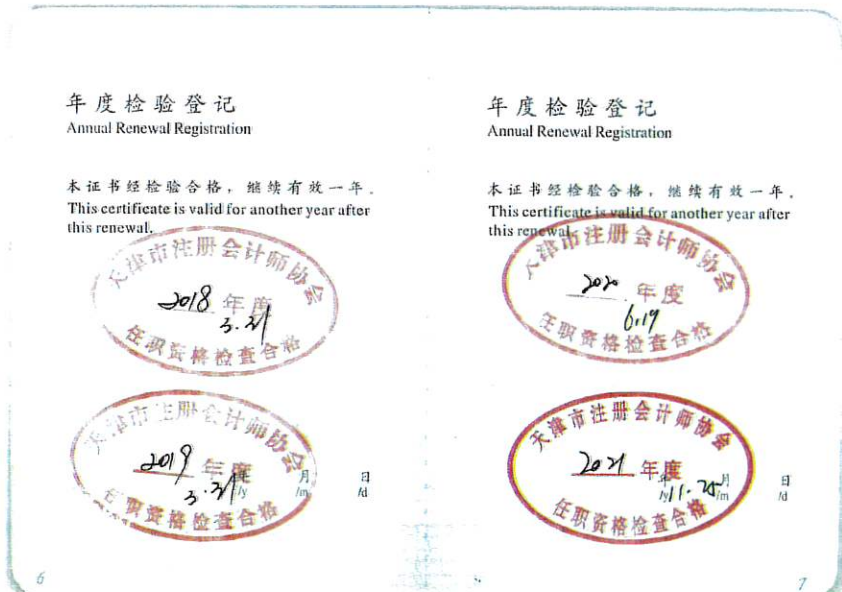 年度检验登记
Annual Renewal Registration
本证书经检验合格，继续有效一年.
This certificate is valid for another year after
this renewal.
天津市注册会计师协会
2018 年度
3.31
任职资格检查合格
天津市注册会计师协会
2019 年度
3.31
年 月 日
/y /m /d
任职资格检查合格
6
年度检验登记
Annual Renewal Registration
本证书经检验合格，继续有效一年.
This certificate is valid for another year after
this renewal.
天津市注册会计师协会
2020 年度
6.19
任职资格检查合格
天津市注册会计师协会
2021 年度
11.25
年 月 日
/y /m /d
任职资格检查合格
7